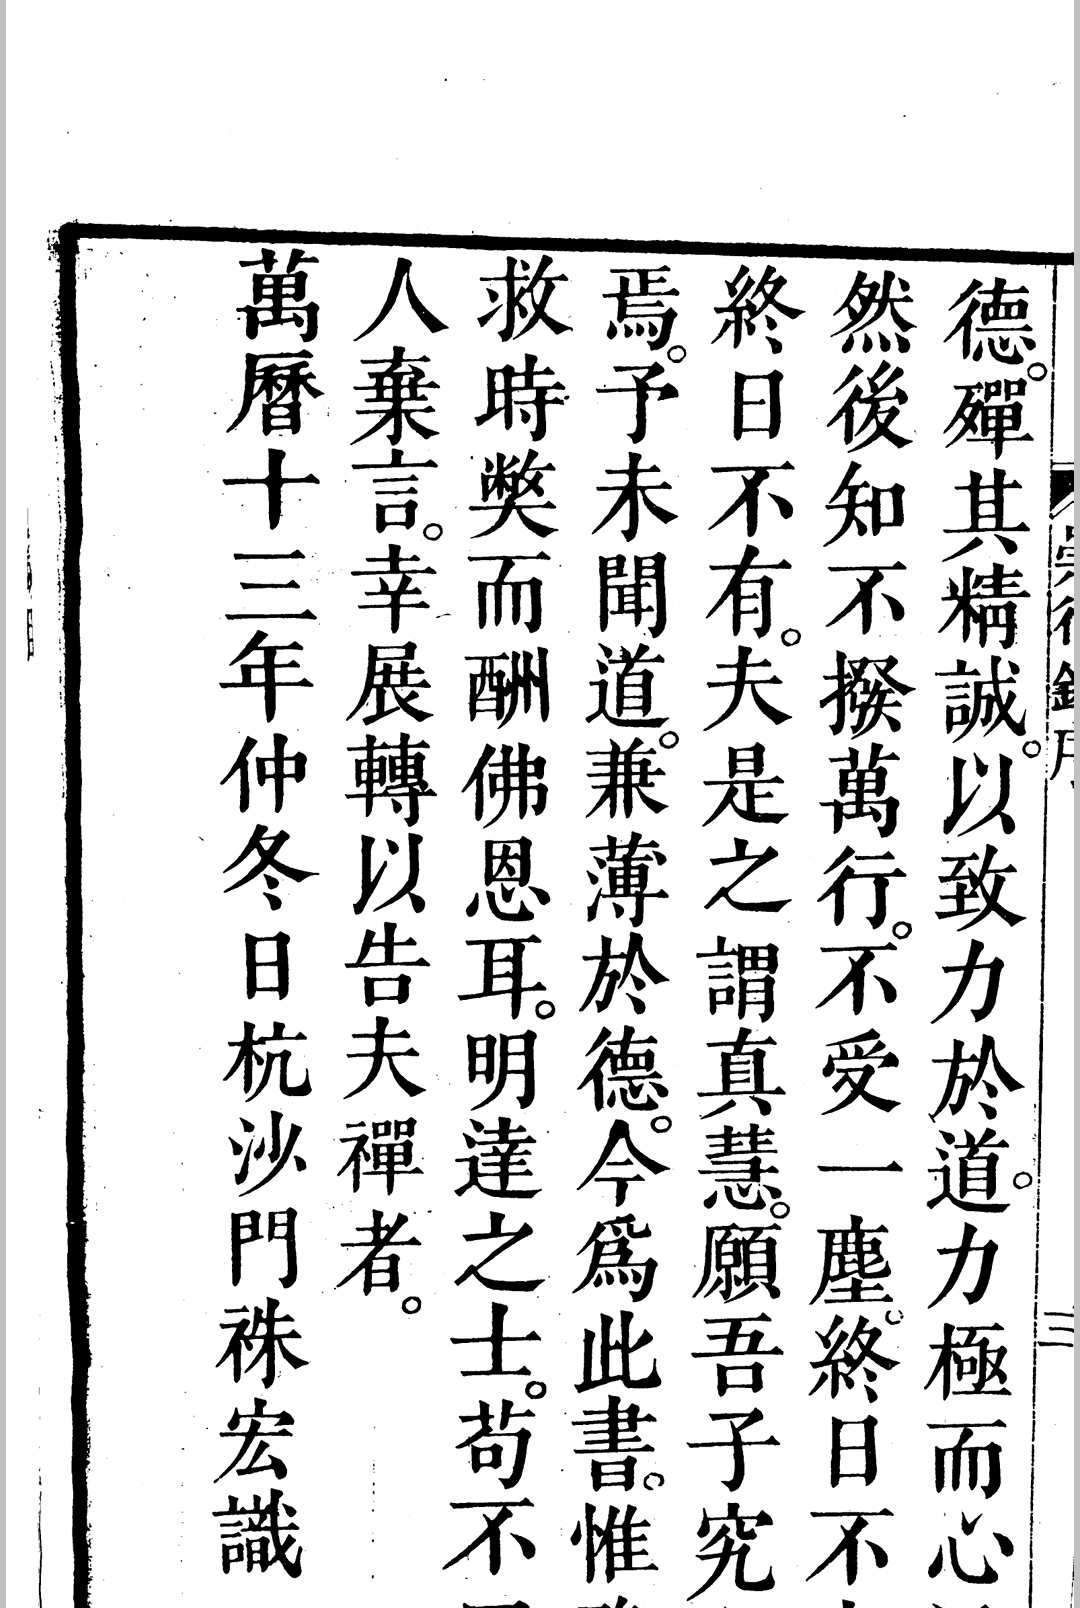 崇行錄序
三
德。殫其精誠。以致力於道。力極而心
然後知不撥萬行。不受一塵。終日不
終日不有。夫是之謂真慧。願吾子究
焉。予未聞道。兼薄於德。今爲此書。惟
救時獘而酬佛恩耳。明達之士。茍不
人棄言。幸展轉以告夫禪者。
萬曆十三年仲冬日杭沙門袾宏識